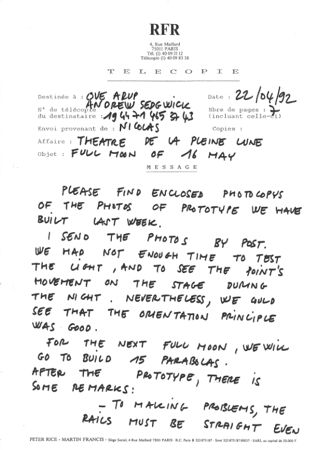 RFR
4, Rue Maillard
75011 PARIS
TELECOPIE
Destinée à : OVE ARUP
ANDREW SEDGWICK
Date : 22/04/92
N° de télécopie
du destinataire : 19 44 71 465 37 43
Nbre de pages : 7
(incluant celle-ci)
Envoi provenant de : NICOLAS
Copies :
Affaire : THEATRE DE LA PLEINE LUNE
Objet : FULL MOON OF 16 MAY
MESSAGE
PLEASE FIND ENCLOSED PHOTOCOPYS
OF THE PHOTOS OF PROTOTYPE WE HAVE
BUILT LAST WEEK.
I SEND THE PHOTOS BY POST.
WE HAD NOT ENOUGH TIME TO TEST
THE LIGHT, AND TO SEE THE POINT'S
MOVEMENT ON THE STAGE DURING
THE NIGHT. NEVERTHELESS, WE COULD
SEE THAT THE ORIENTATION PRINCIPLE
WAS GOOD.
FOR THE NEXT FULL MOON, WE WILL
GO TO BUILD 15 PARABOLAS.
AFTER THE PROTOTYPE, THERE IS
SOME REMARKS:
- TO MAKING PROBLEMS, THE
RAILS MUST BE STRAIGHT EVEN
PETER RICE - MARTIN FRANCIS - Siège Social, 4 Rue Maillard 75011 PARIS